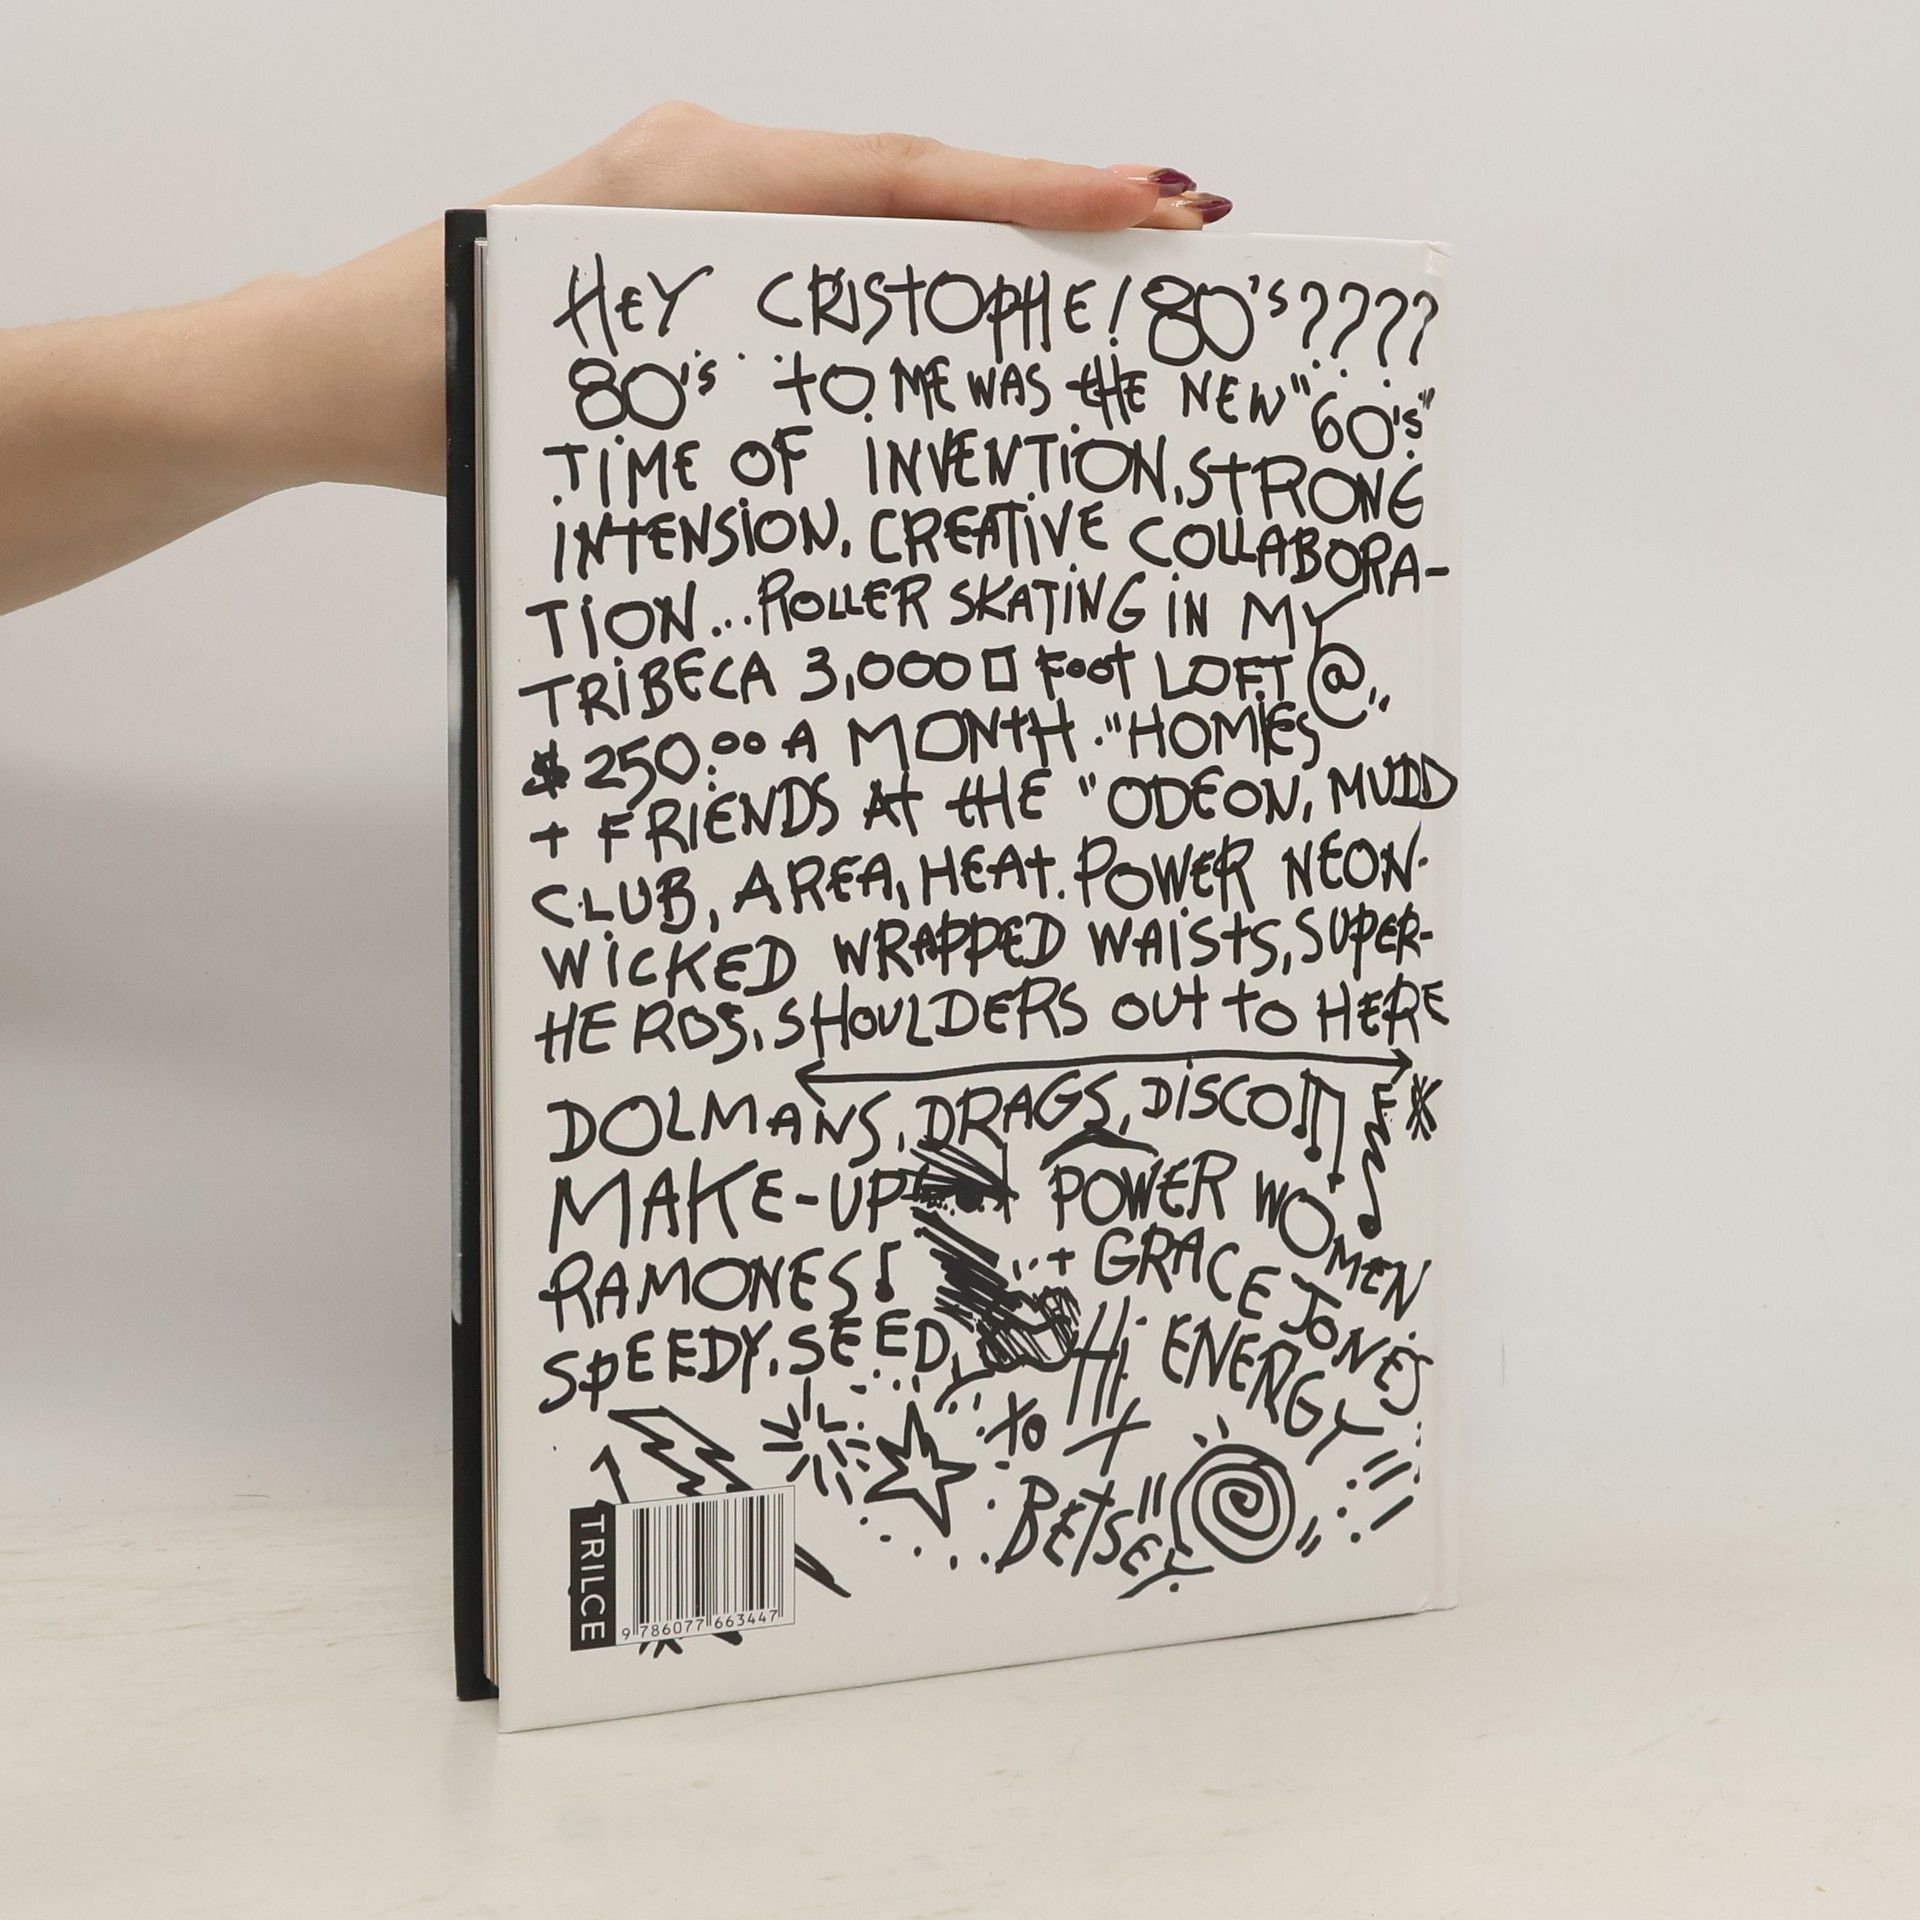 HEY CRISTOPHE! 80's????
80's TO ME WAS tHE NEW "60's"
TIME OF INVENTION, StRONG
INTENSION, CREATIVE COLLABORA-
TION...ROLLER SKATING IN MY
TRIBECA 3,000 □ FOOT LOFT @
$250.00 A MONTH. "HOMIES"
+ FRIENDS At tHE "ODEON, MUDD
CLUB, AREA, HEAT. POWER NEON.
WICKED WRAPPED WAISTS, SUPER-
HEROS, SHOULDERS OUT TO HERE
DOLMANS, DRAGS, DISCO
MAKE-UP POWER WOMEN
RAMONES + GRACE JONES
SPEEDY, SEEDY Hi ENERGY
XO
BETSEY
TRILCE
9 786077 663447